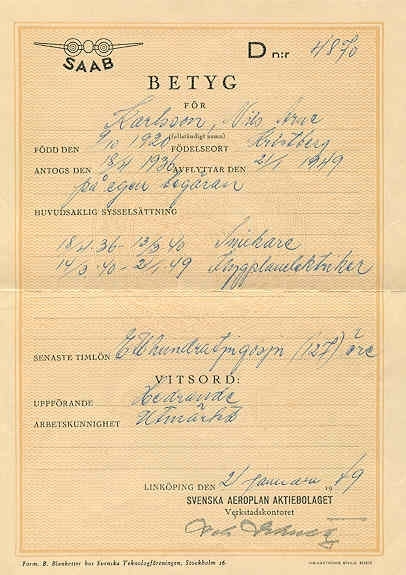 SAAB
D n:r 4870
BETYG
FÖR
Karlsson, Nils Arne
(fullständigt namn)
FÖDD DEN 9/10 1920 FÖDELSEORT Kristberg
ANTOGS DEN 18/4 1936 AVFLYTTAR DEN 2/1 1949
på egen begäran
HUVUDSAKLIG SYSSELSÄTTNING
18/4.36 - 13/3 40 Snickare
14/3.40 - 2/1.49 Flygplanelektriker
SENASTE TIMLÖN Ett hundratjugosju (127) öre
VITSORD:
UPPFÖRANDE Hedrande
ARBETSKUNNIGHET Utmärkt
LINKÖPING DEN 2/ januari 1949
SVENSKA AEROPLAN AKTIEBOLAGET
Verkstadskontoret
Form. B. Blanketter hos Svenska Teknologföreningen, Stockholm 16.